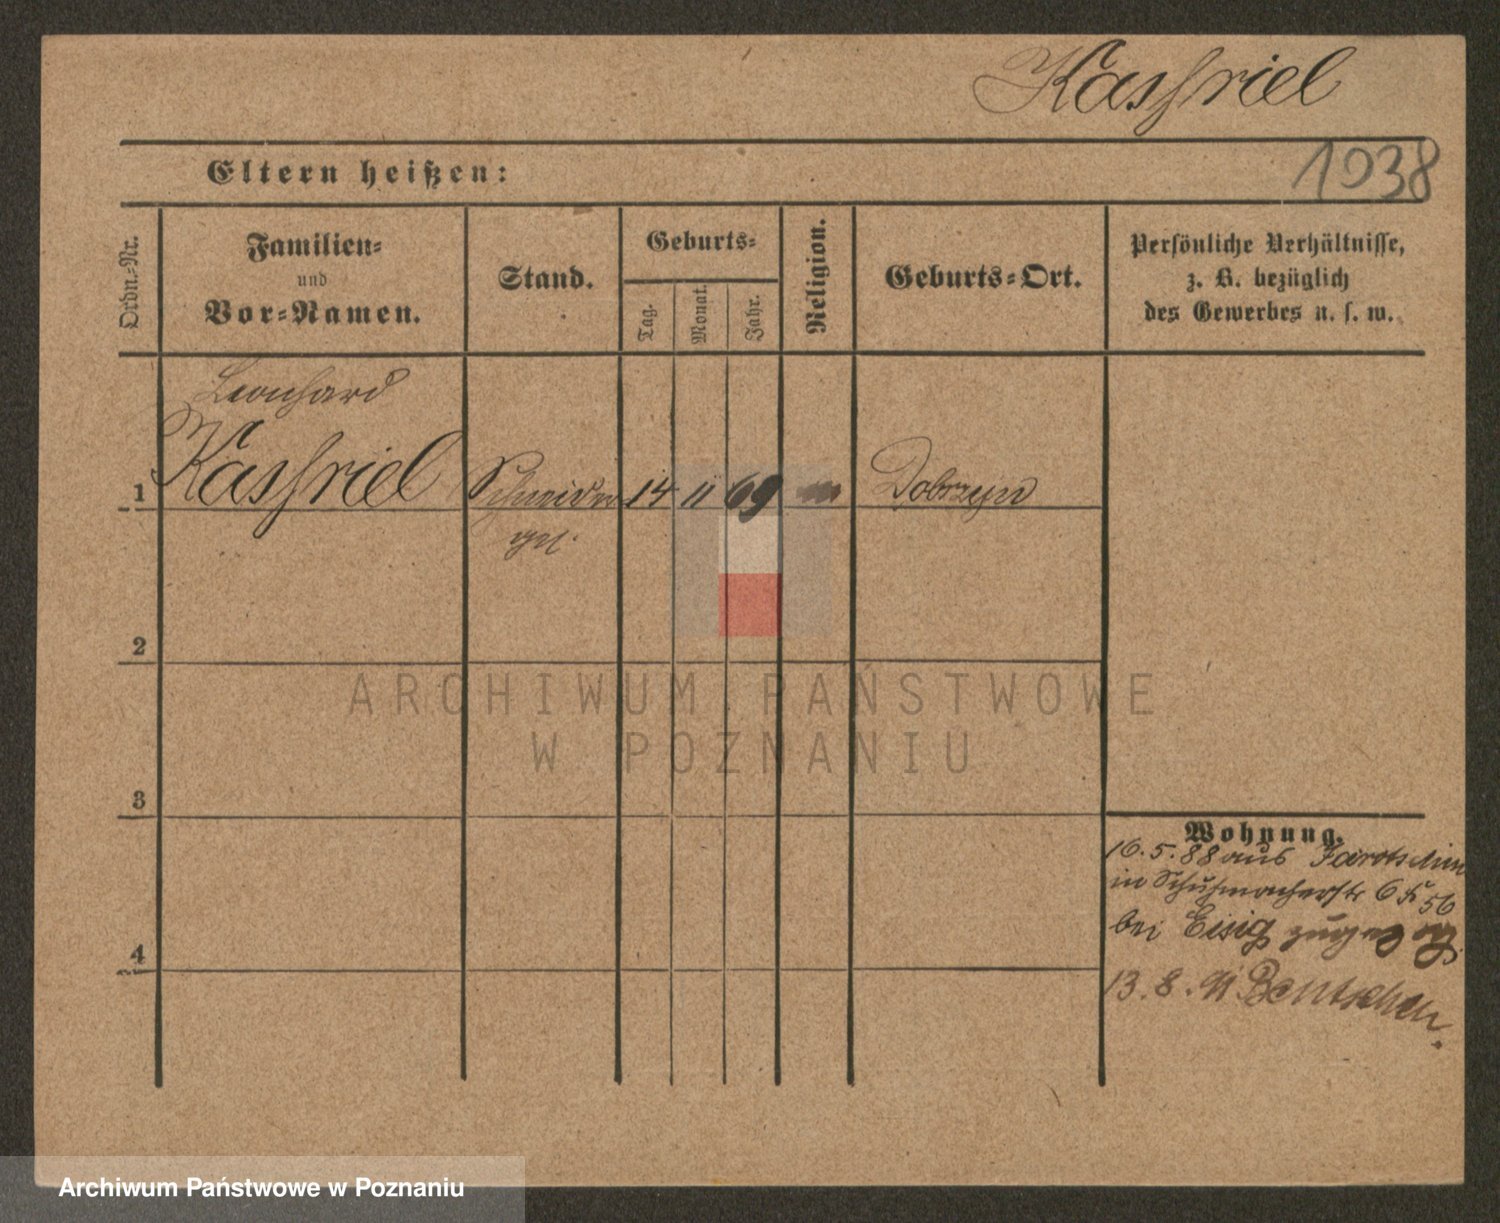 Kassriel
1038
Eltern heißen:
Ordn.-Nr.
Familien-
und
Vor-Namen.
Stand.
Geburts-
Tag.
Monat.
Jahr.
Religion.
Geburts-Ort.
Persönliche Verhältnisse,
z. B. bezüglich
des Gewerbes u. s. w.
Leonhard
1 Kassriel Schneider 14 11 69 Dobrzyn
2
3
4
Wohnung.
16.5.88 aus Jarotschin
in Schuhmacherstr 6
bei Eisig
13.8.91 Bentschen.
ARCHIWUM PAŃSTWOWE
W POZNANIU
Archiwum Państwowe w Poznaniu